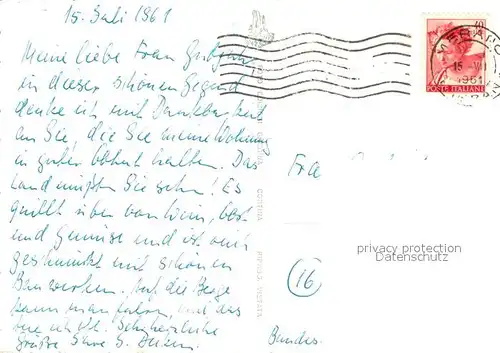 15. Juli 1961
Meine liebe Frau
in dieser schönen Gegend
denke ich mit Dankbarkeit
an Sie, die Sie meine Wohnung
in guter Obhut halten. Das
Land müßten Sie sehn! Es
quillt über von Wein, Obst
und Gemüse und ist reich
geschmückt mit schönen
Bauwerken. Auf die Berge
kann man fahren, und das
tue ich oft. Sehr herzliche
Grüße Ihre
MERANO
15
1961
40
POSTE ITALIANE
CORTINA
Fra
privacy protection
Datenschutz
16
Bundes